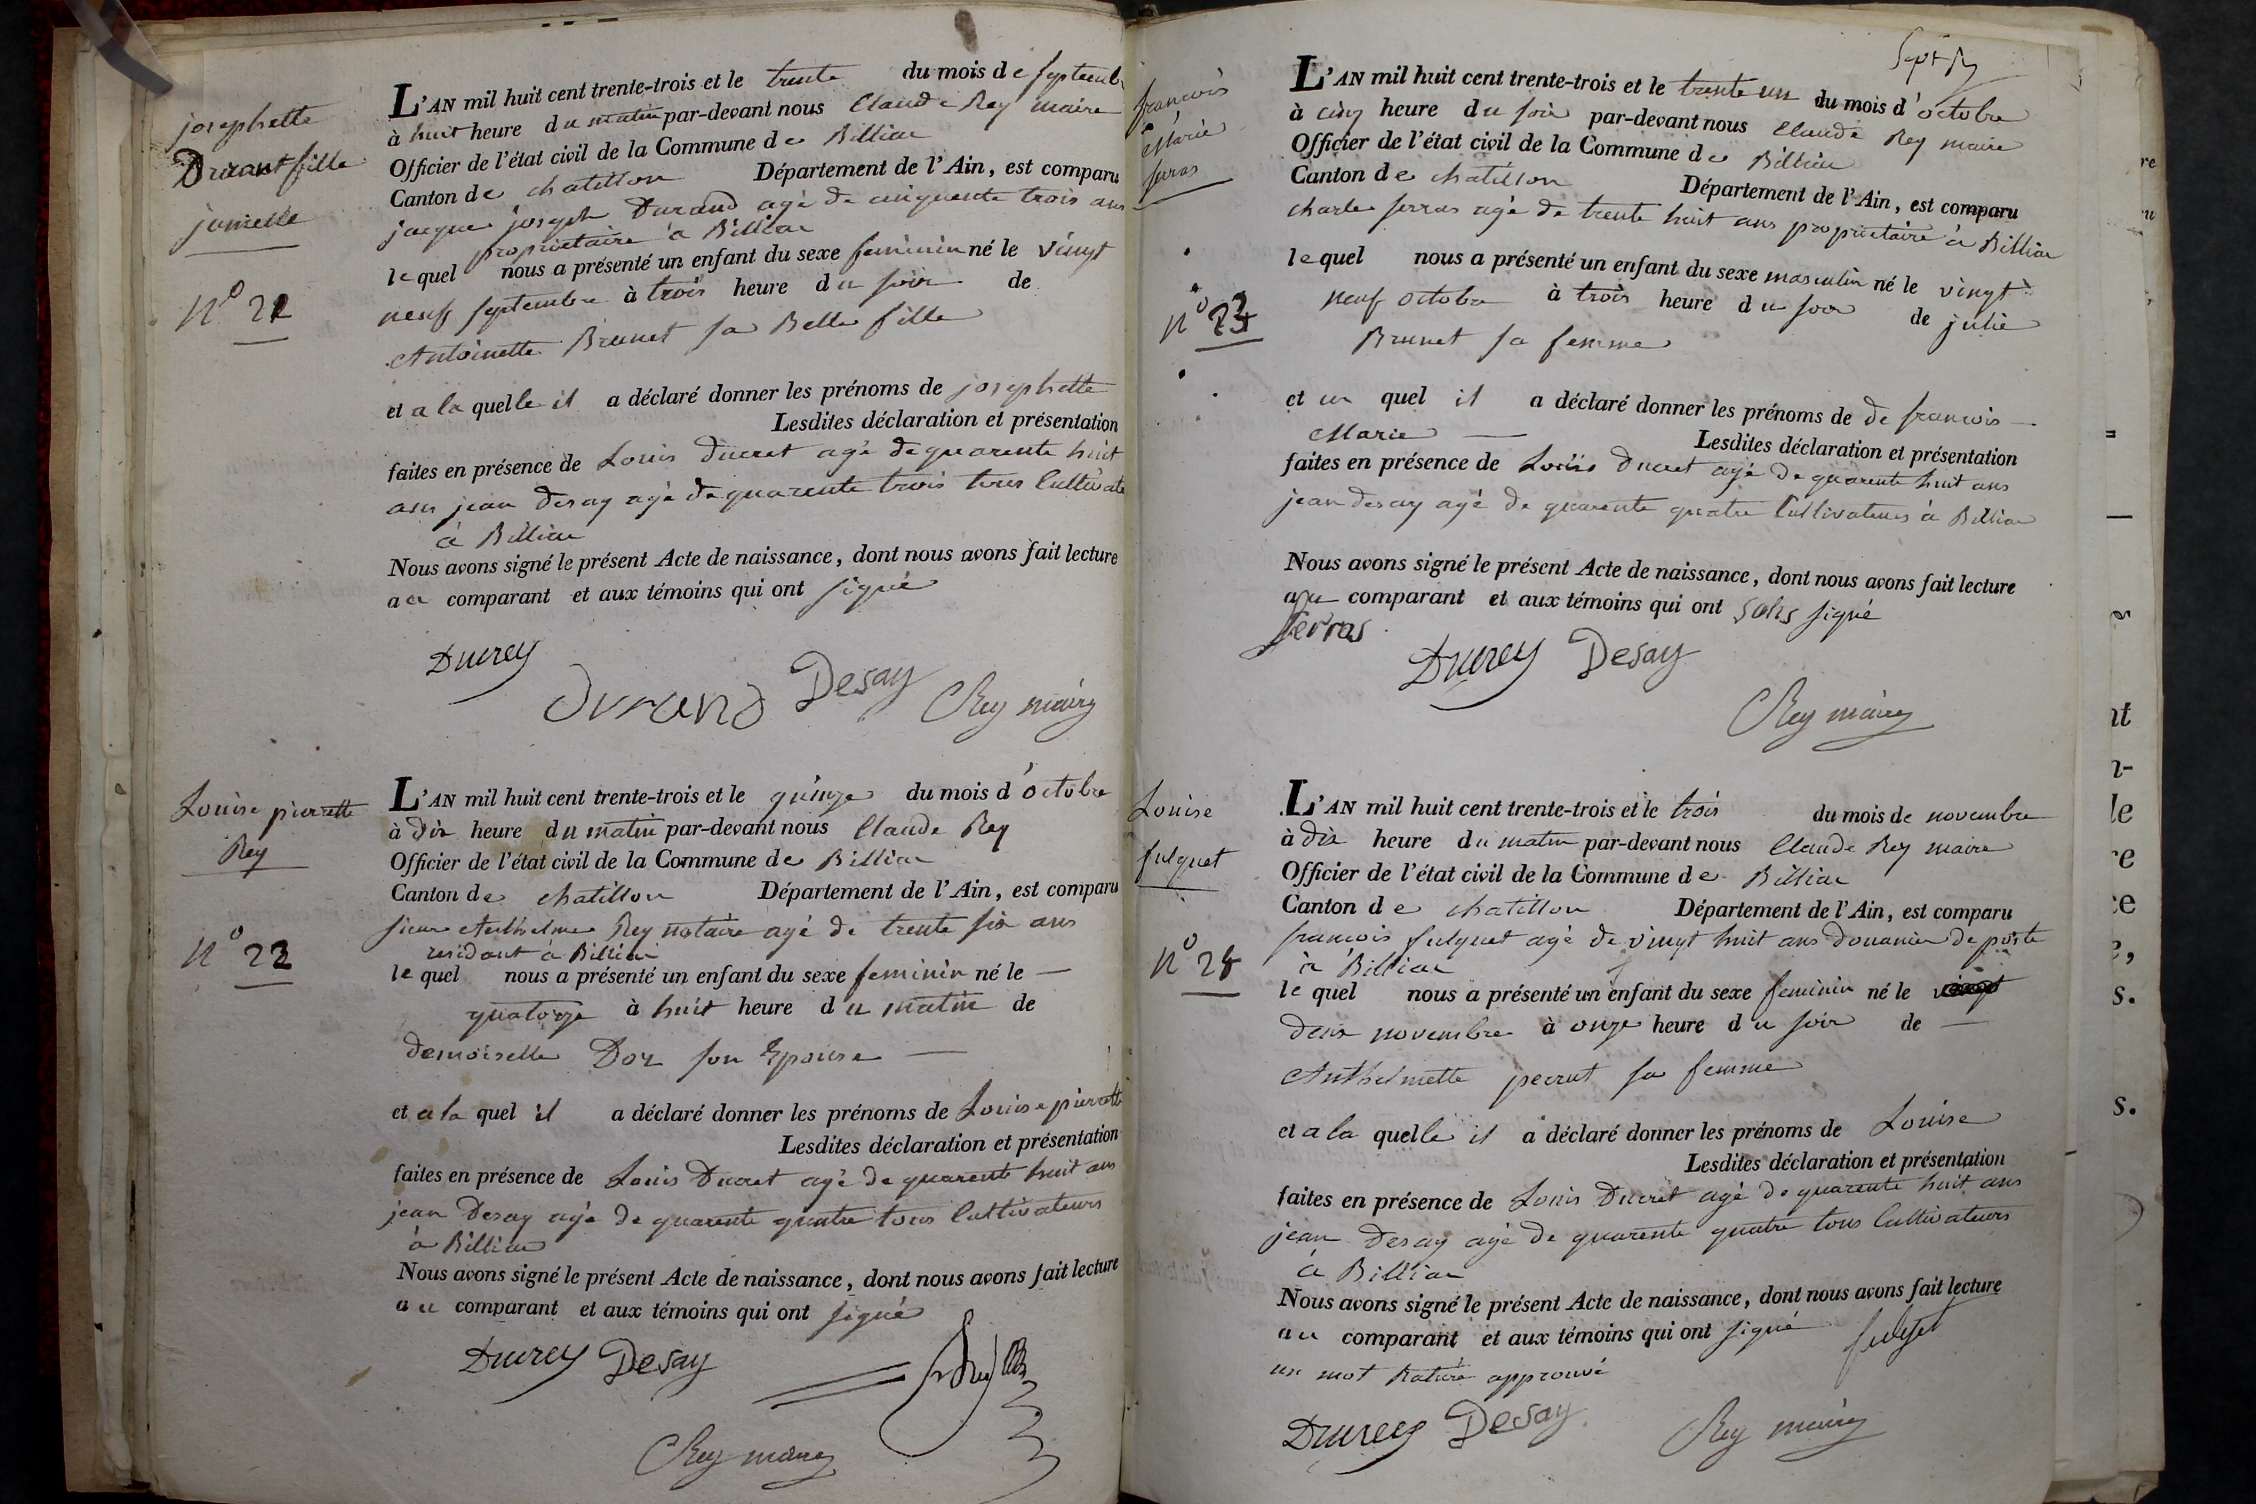 josephette
Durant fille
jumelle
N° 21
L'AN mil huit cent trente-trois et le trente du mois de septemb
à huit heure du matin par-devant nous Claude Rey maire
Officier de l'état civil de la Commune de Billiac
Canton de chatillon Département de l'Ain, est comparu
jacque joseph Durand agé de cinquante trois ans
propriétaire à Billiac
lequel nous a présenté un enfant du sexe feminin né le vingt
neuf septembre à trois heure du soir de
Antoinette Brunet sa Belle fille
et a la quelle il a déclaré donner les prénoms de josephette
Lesdites déclaration et présentation
faites en présence de Louis Ducret agé de quarente huit
ans jean Desay agé de quarente trois tous Cultivate
à Billiac
Nous avons signé le présent Acte de naissance, dont nous avons fait lecture
au comparant et aux témoins qui ont signé
Ducrey
Durand Desay CRey maire
Louise pierrette
Rey
N° 22
L'AN mil huit cent trente-trois et le quinze du mois d'octobre
à dix heure du matin par-devant nous Claude Rey
Officier de l'état civil de la Commune de Billiac
Canton de chatillon Département de l'Ain, est comparu
sieur Anthelme Rey notaire agé de trente six ans
residant à Billiac
lequel nous a présenté un enfant du sexe feminin né le —
quatorze à huit heure du matin de
demoiselle Doz son Epouse —
et a la quel il a déclaré donner les prénoms de Louise pierrette
Lesdites déclaration et présentation
faites en présence de Louis Ducret agé de quarente huit ans
jean Desay agé de quarente quatre tous Cultivateurs
à Billiac
Nous avons signé le présent Acte de naissance, dont nous avons fait lecture
au comparant et aux témoins qui ont signé
Ducrey Desay
CRey maire
Sept
francois
Marie
serras
N° 23
L'AN mil huit cent trente-trois et le trente un du mois d'octobre
à cinq heure du soir par-devant nous Claude Rey maire
Officier de l'état civil de la Commune de Billiac
Canton de chatillon Département de l'Ain, est comparu
charle serras agé de trente huit ans propriétaire à Billiac
lequel nous a présenté un enfant du sexe masculin né le vingt
neuf octobre à trois heure du soir de julie
Brunet sa femme
et au quel il a déclaré donner les prénoms de de francois —
Marie — Lesdites déclaration et présentation
faites en présence de Louis Ducret agé de quarente huit ans
jean desay agé de quarente quatre Cultivateurs à Billiac
Nous avons signé le présent Acte de naissance, dont nous avons fait lecture
au comparant et aux témoins qui ont signé
Serras
Ducrey Desay
CRey maire
Louise
fulquet
N° 24
L'AN mil huit cent trente-trois et le trois du mois de novembre
à dix heure du matin par-devant nous Claude Rey maire
Officier de l'état civil de la Commune de Billiac
Canton de chatillon Département de l'Ain, est comparu
francois fulquet agé de vingt huit ans douanier de poste
à Billiac
lequel nous a présenté un enfant du sexe feminin né le
deux novembre à onze heure du soir de —
Anthelmette sa femme
et a la quelle il a déclaré donner les prénoms de Louise
Lesdites déclaration et présentation
faites en présence de Louis Ducret agé de quarente huit ans
jean Desay agé de quarente quatre tous Cultivateurs
à Billiac
Nous avons signé le présent Acte de naissance, dont nous avons fait lecture
au comparant et aux témoins qui ont signé
un mot Raturé approuvé
Ducrey Desay CRey maire